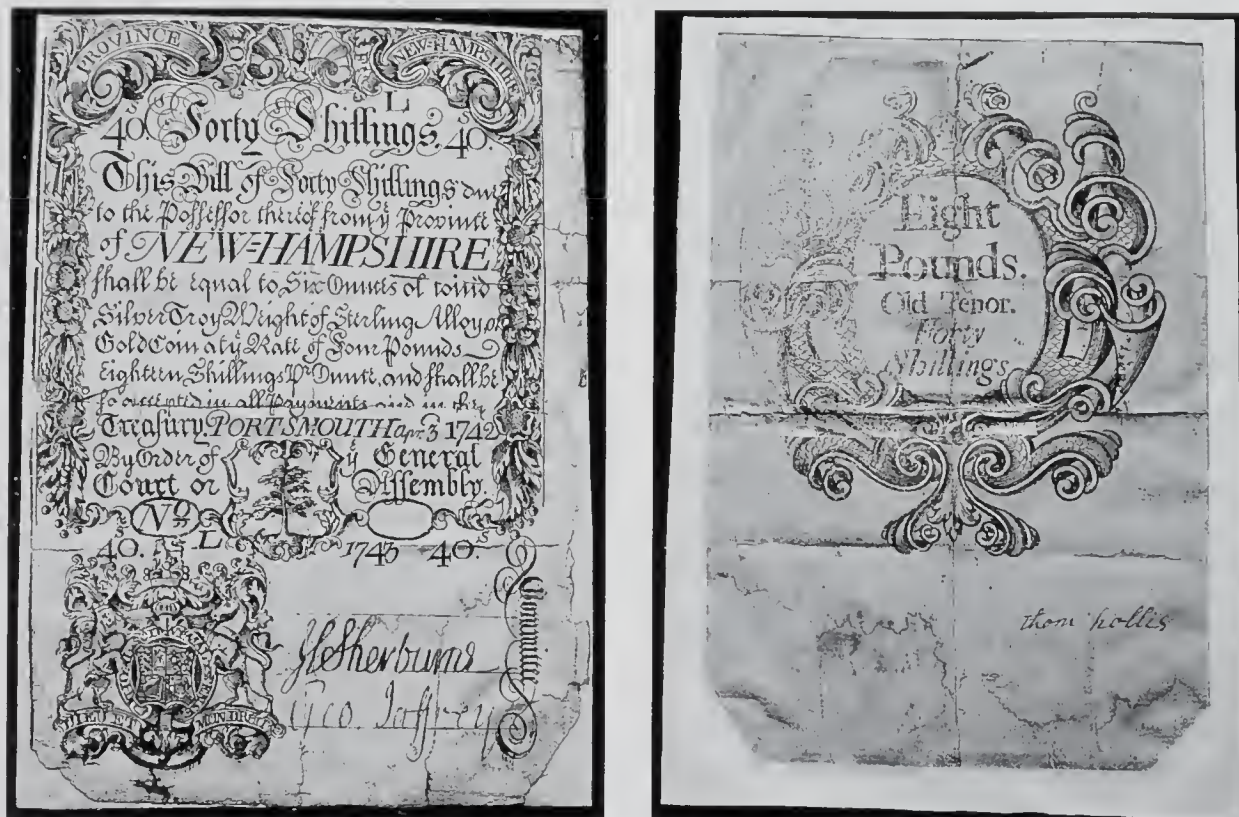 PROVINCE NEW-HAMPSHIRE
L
40.s Forty Shillings. 40.s
This Bill of Forty Shillings due
to the Possessor thereof from yͤ Province
of NEW=HAMPSHIRE
shall be equal to Six Ounces of coind
Silver Troy Weight of Sterling Alloy or
Gold Coin at yͤ Rate of Four Pounds
Eighteen Shillings Pr. Ounce, and shall be
so accepted in all Payments and in the
Treasury, PORTSMOUTH apr. 3 1742
By Order of yͤ General
Court or Assembly.
No
40.s L 1743 40.s
DIEU ET MON DROIT
Committee
Geo Jaffrey
Eight
Pounds.
Old Tenor.
Forty
Shillings
thom hollis